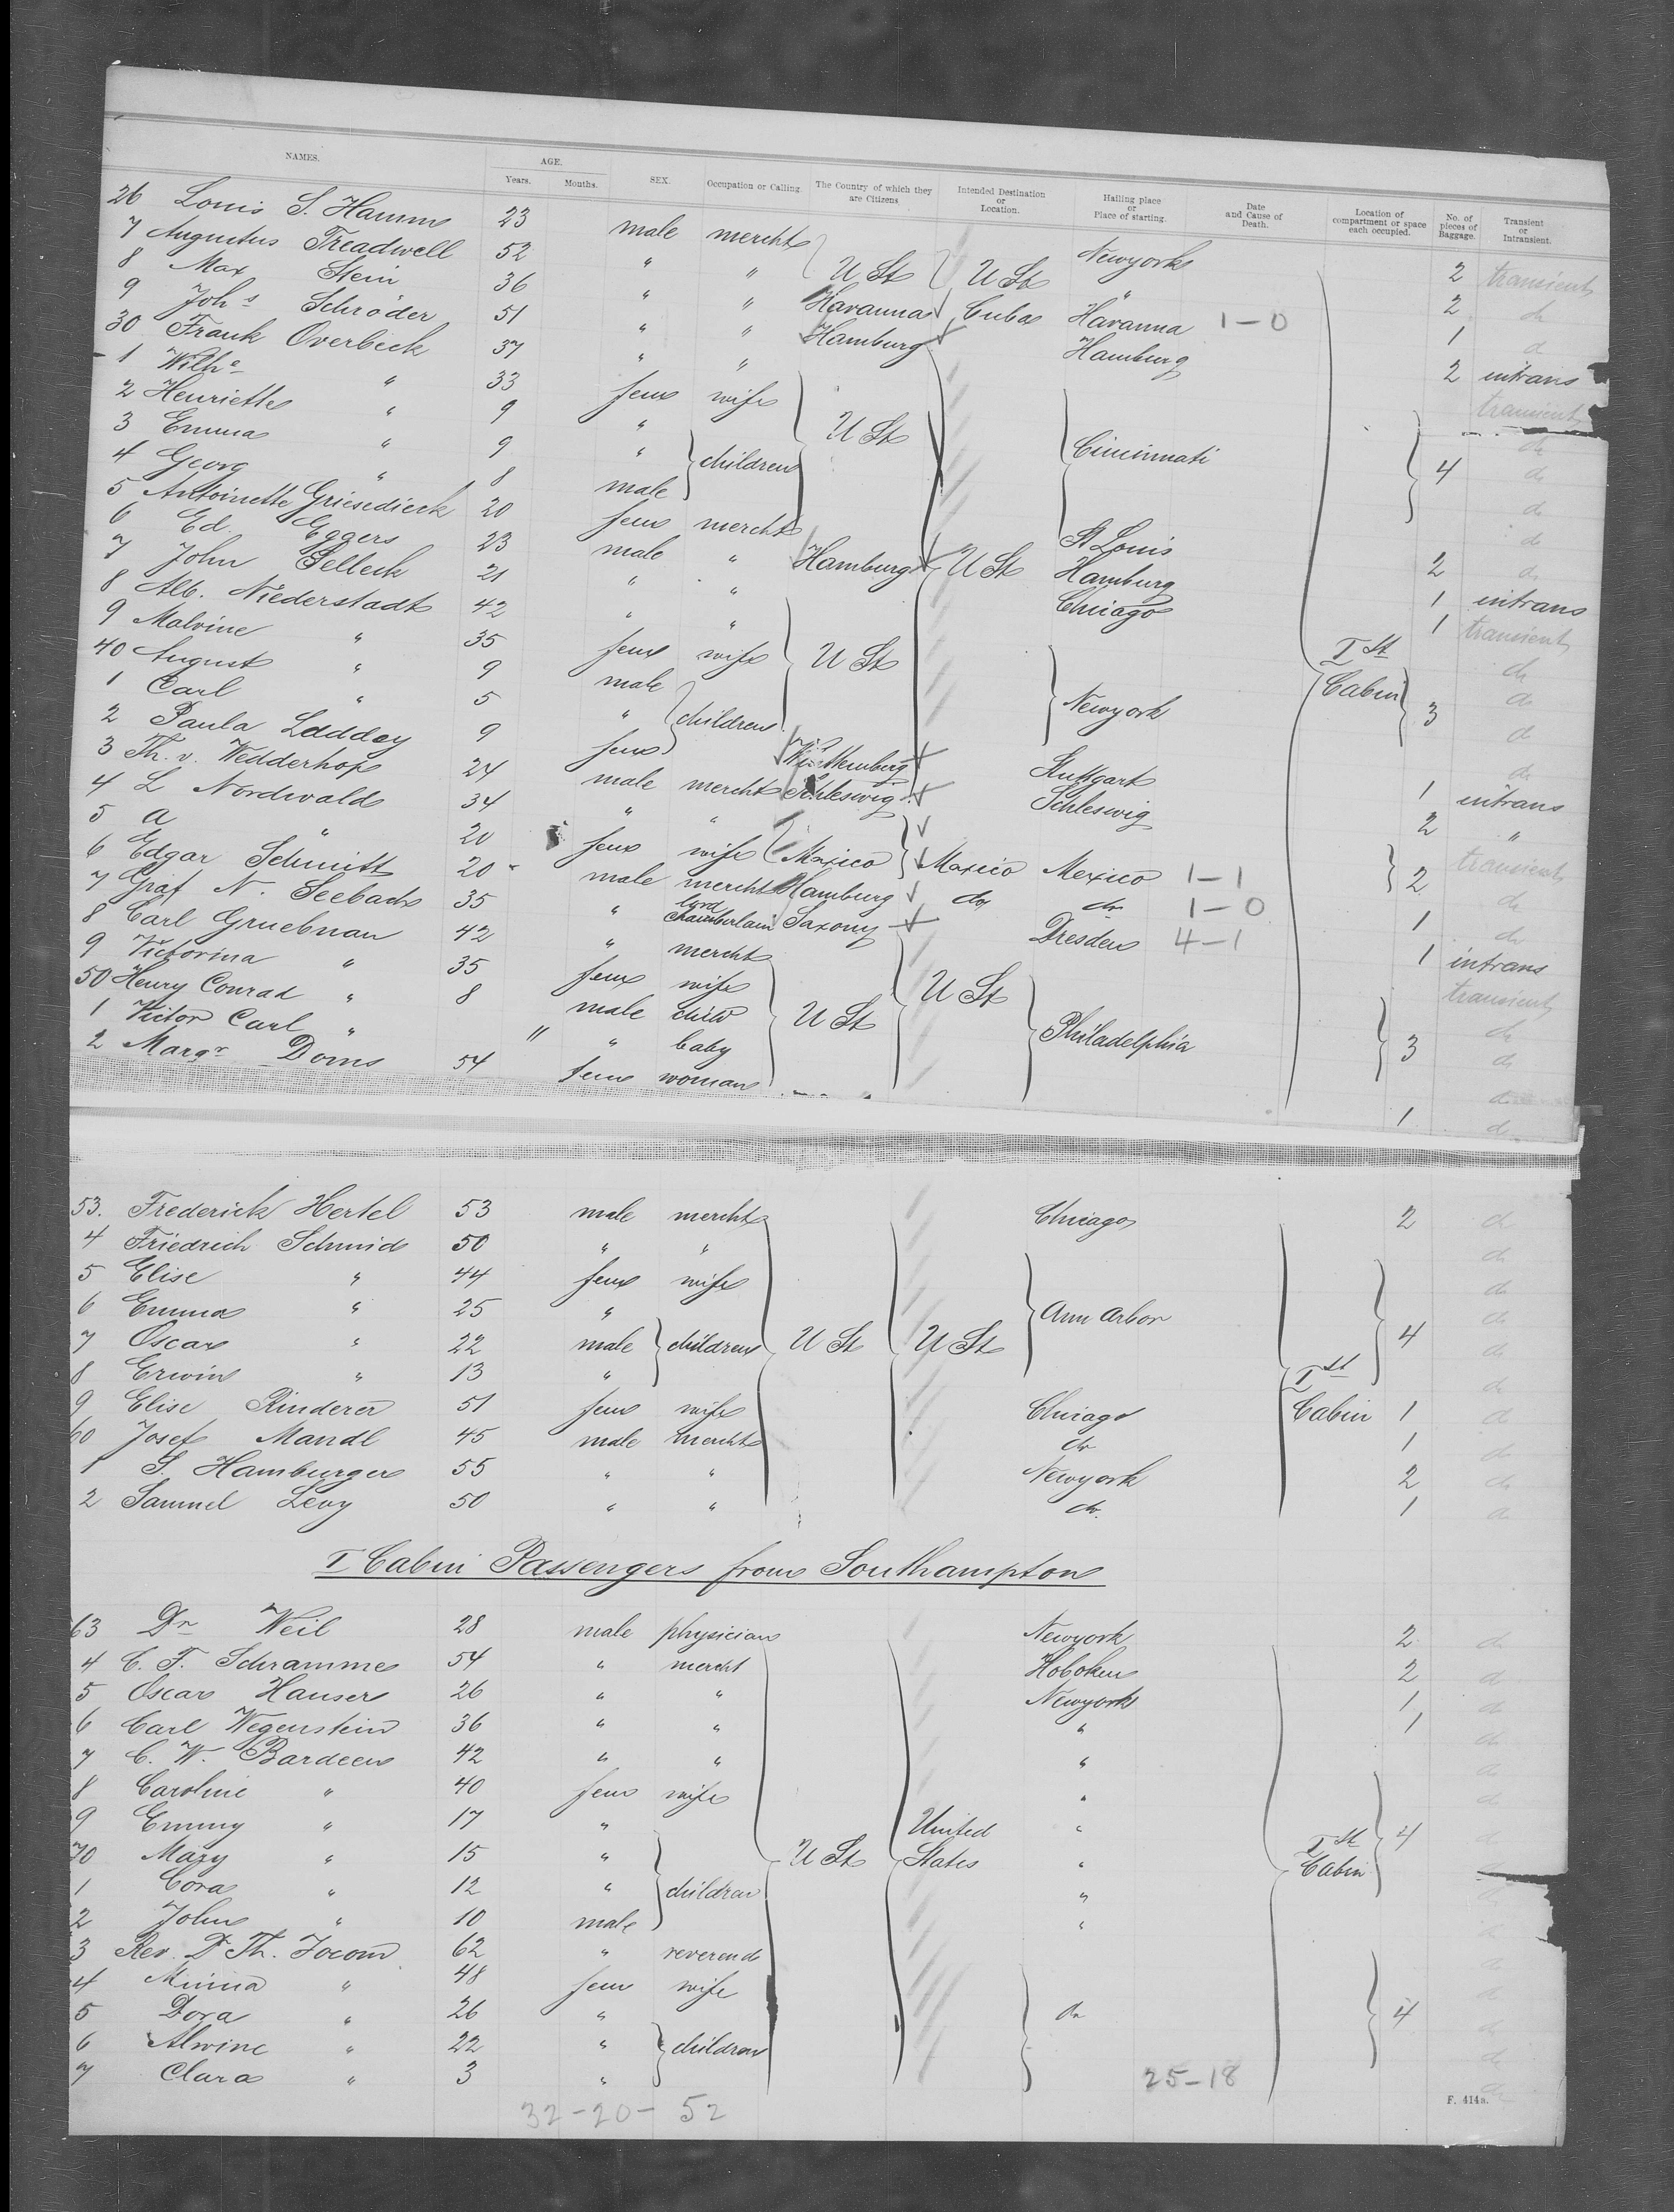 NAMES. AGE. Years. Months. SEX. Occupation or Calling. The Country of which they are Citizens Intended Destination or Location. Hailing place or Place of starting. Date and Cause of Death. Location of compartment or space each occupied. No. of pieces of Baggage. Transient or Intransient.
26 Louis S. Hamm 23 male mercht Newyork 2 transient
7 Augustus Treadwell 52 " " U St U St " 2 do
8 Max Stein 36 " " Havanna Cuba Havanna 1-0 1 do
9 Johs Schröder 51 " " Hamburg Hamburg 2 intrans
30 Frank Overbeck 37 " " transient
1 Wilhe " 33 fem wife do
2 Henriette " 9 " U St Cincinnati 4 do
3 Emma " 9 " children do
4 Georg " 8 male do
5 Antoinette Griesedieck 20 fem mercht St Louis 2 do
6 Ed. Eggers 23 male " Hamburg U St Hamburg 1 intrans
7 John Selleck 21 " " Chicago 1 transient
8 Alb. Niederstadt 42 " " do
9 Malvine " 35 fem wife U St Ist Cabin do
40 August " 9 male Newyork 3 do
1 Carl " 5 " children
2 Paula Laddey 9 fem Württemberg Stuttgart 1 intrans
3 Th. v. Wedderhop 24 male mercht Schleswig Schleswig 2 "
4 L Nordwald 34 " " transient
5 A " 20 fem wife Mexico Mexico Mexico 1-1 2 do
6 Edgar Schmitt 20 male mercht Hamburg do do 1-0 1 do
7 Graf N. Seebach 35 " lord chamberlain Saxony Dresden 4-1 1 intrans
8 Carl Gruebnau 42 " mercht transient
9 Victorina " 35 fem wife U St do
50 Henry Conrad " 8 male child U St Philadelphia 3 do
1 Victor Carl " 11 " baby do
2 Margr Doms 54 fem woman 1 do
53. Frederick Hertel 53 male mercht Chicago 2 do
4 Friedrich Schmid 50 " " do
5 Elise " 44 fem wife do
6 Emma " 25 " Ann Arbor do
7 Oscar " 22 male children U St U St 4 do
8 Erwin " 13 " Ist do
9 Elise Rinderer 51 fem wife Chicago Cabin 1 do
60 Josef Mandl 45 male mercht do 1 do
1 S. Hamburger 55 " " Newyork 2 do
2 Samuel Levy 50 " " do. 1 do
I Cabin Passengers from Southampton
63 Dr Weil 28 male physician Newyork 2 do
4 C. F. Schramme 54 " mercht Hoboken 2 do
5 Oscar Hauser 26 " " Newyork 1 do
6 Carl Wegenstein 36 " " " 1 do
7 C. W. Bardeen 42 " " " do
8 Caroline " 40 fem wife " do
9 Emmy " 17 " United " 4 do
70 Mary " 15 " U St States " Ist Cabin
1 Cora " 12 " children " do
2 John " 10 male " do
3 Rev. Dr Th. Jocom 62 " reverend do
4 Minna " 48 fem wife do
5 Dora " 26 " do 4 do
6 Alwine " 22 " children do
7 Clara " 3 " 25-18 do
32-20- 52
F. 414a.